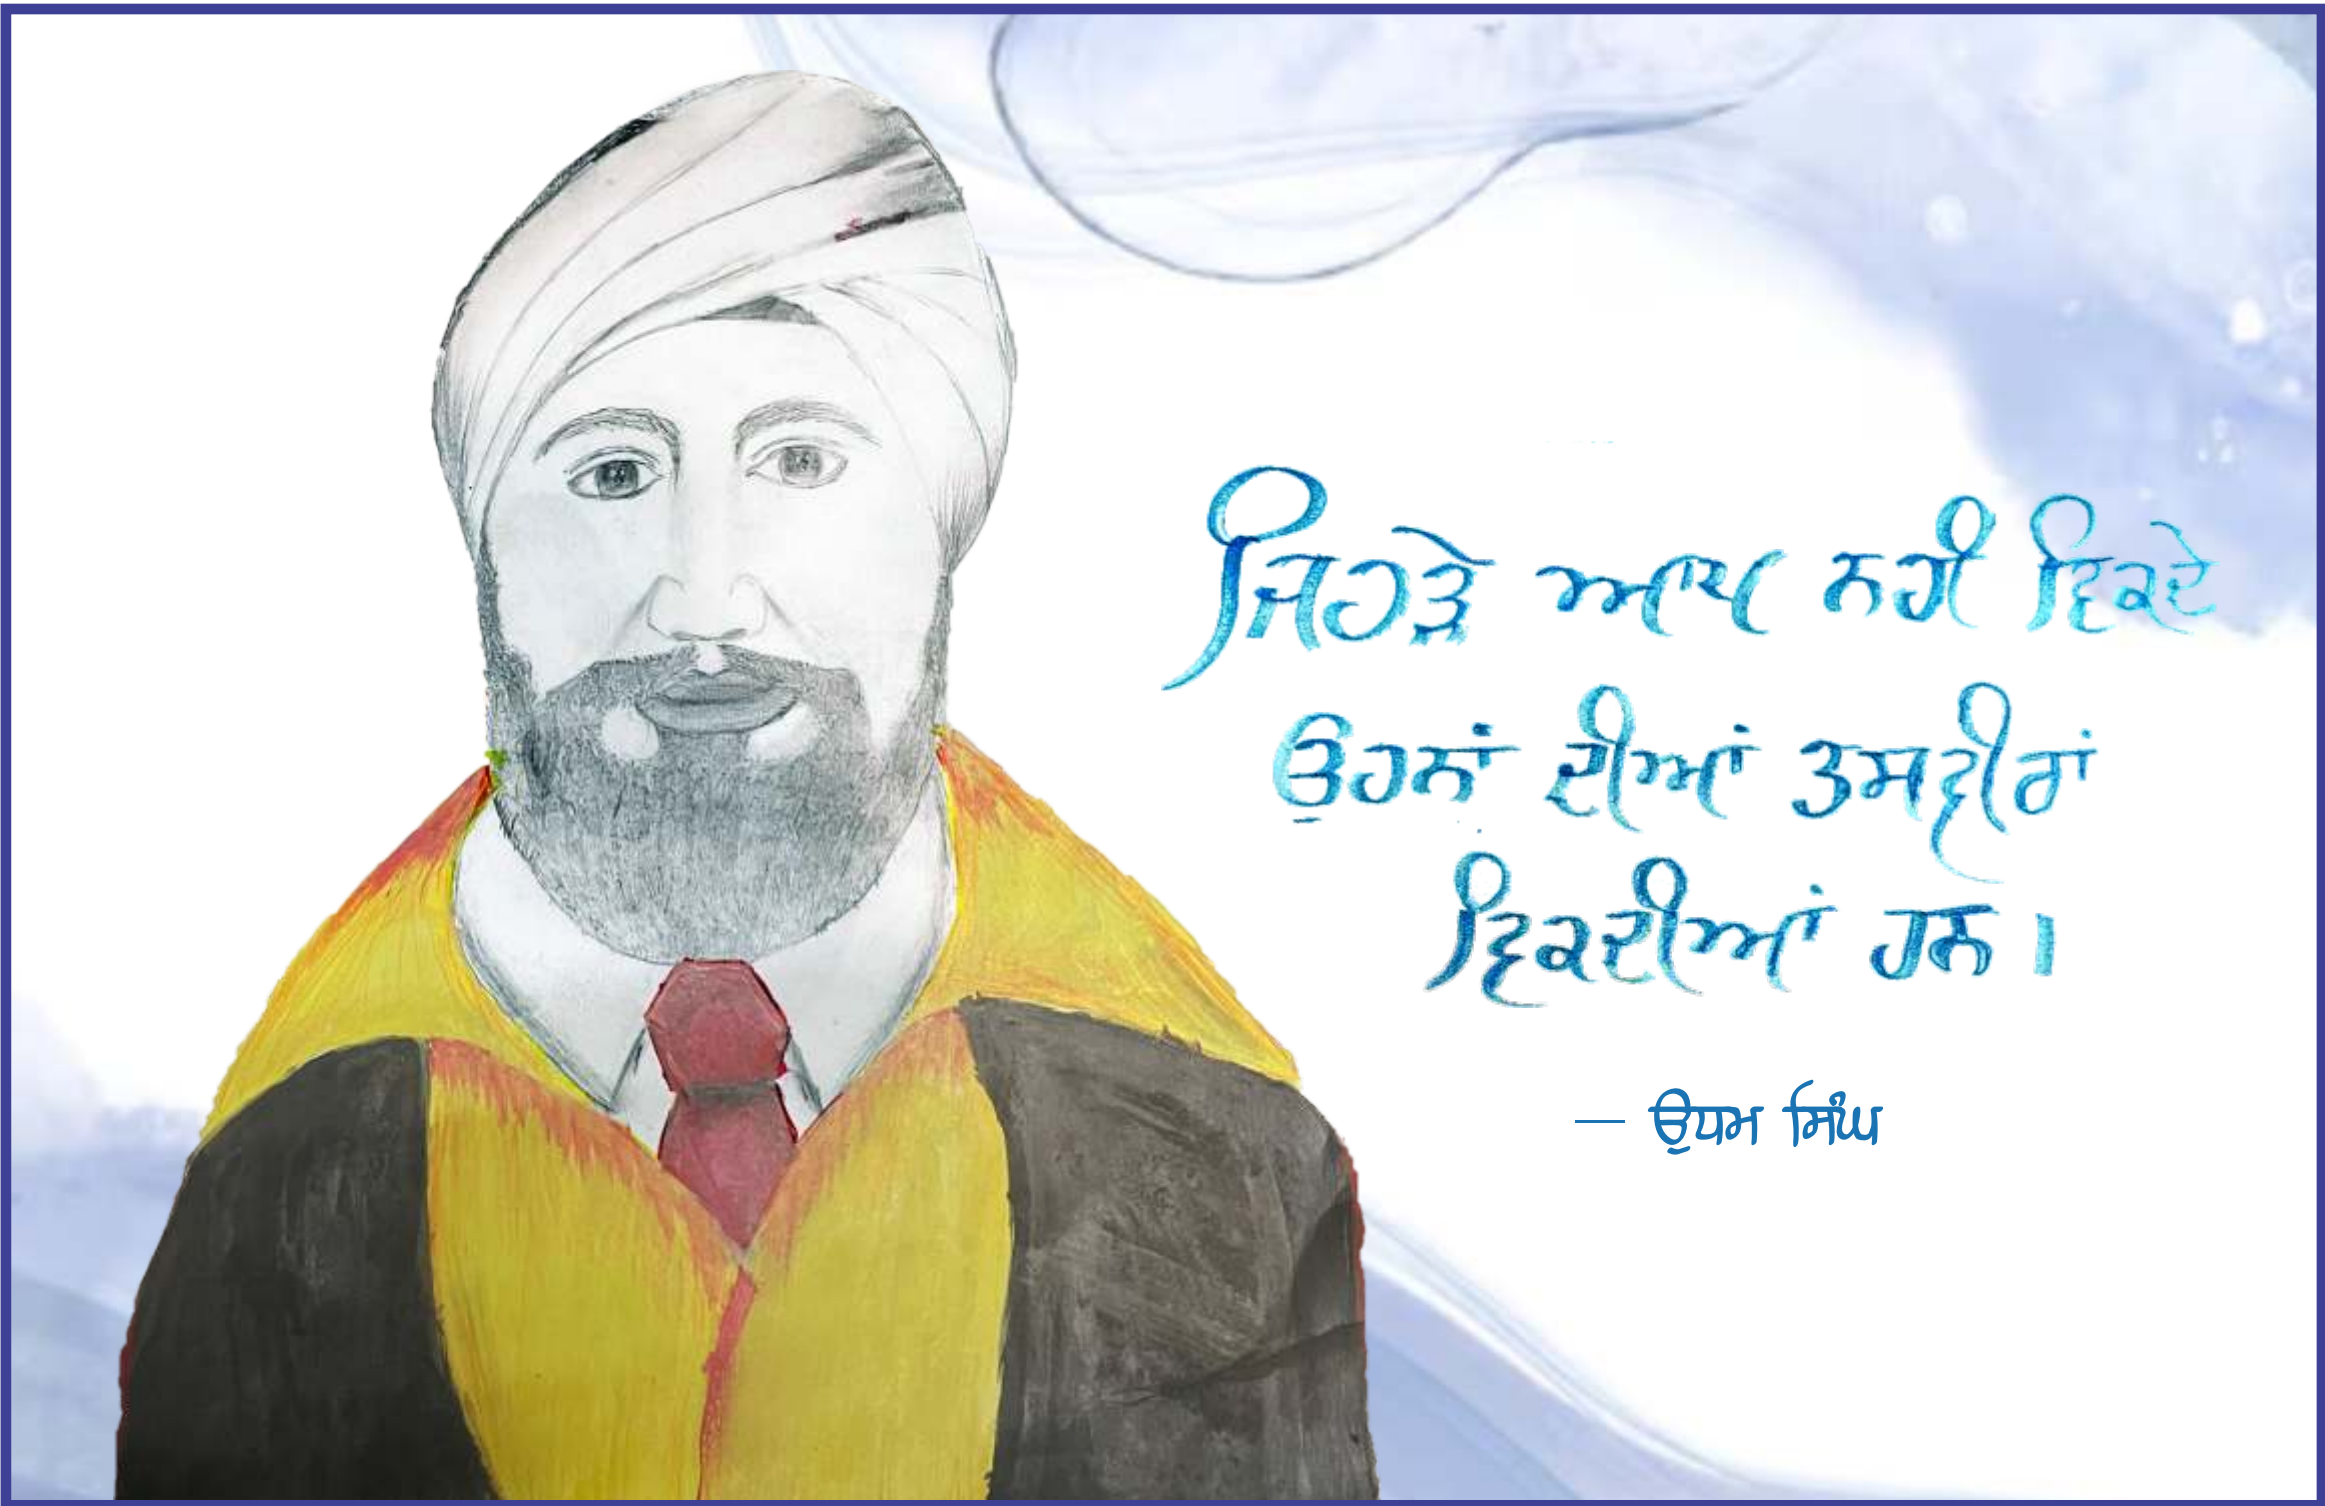 ਜਿਹੜੇ ਆਪ ਨਹੀਂ ਵਿਕਦੇ
ਉਹਨਾਂ ਦੀਆਂ ਤਸਵੀਰਾਂ
ਵਿਕਦੀਆਂ ਹਨ।
— ਉਧਮ ਸਿੰਘ